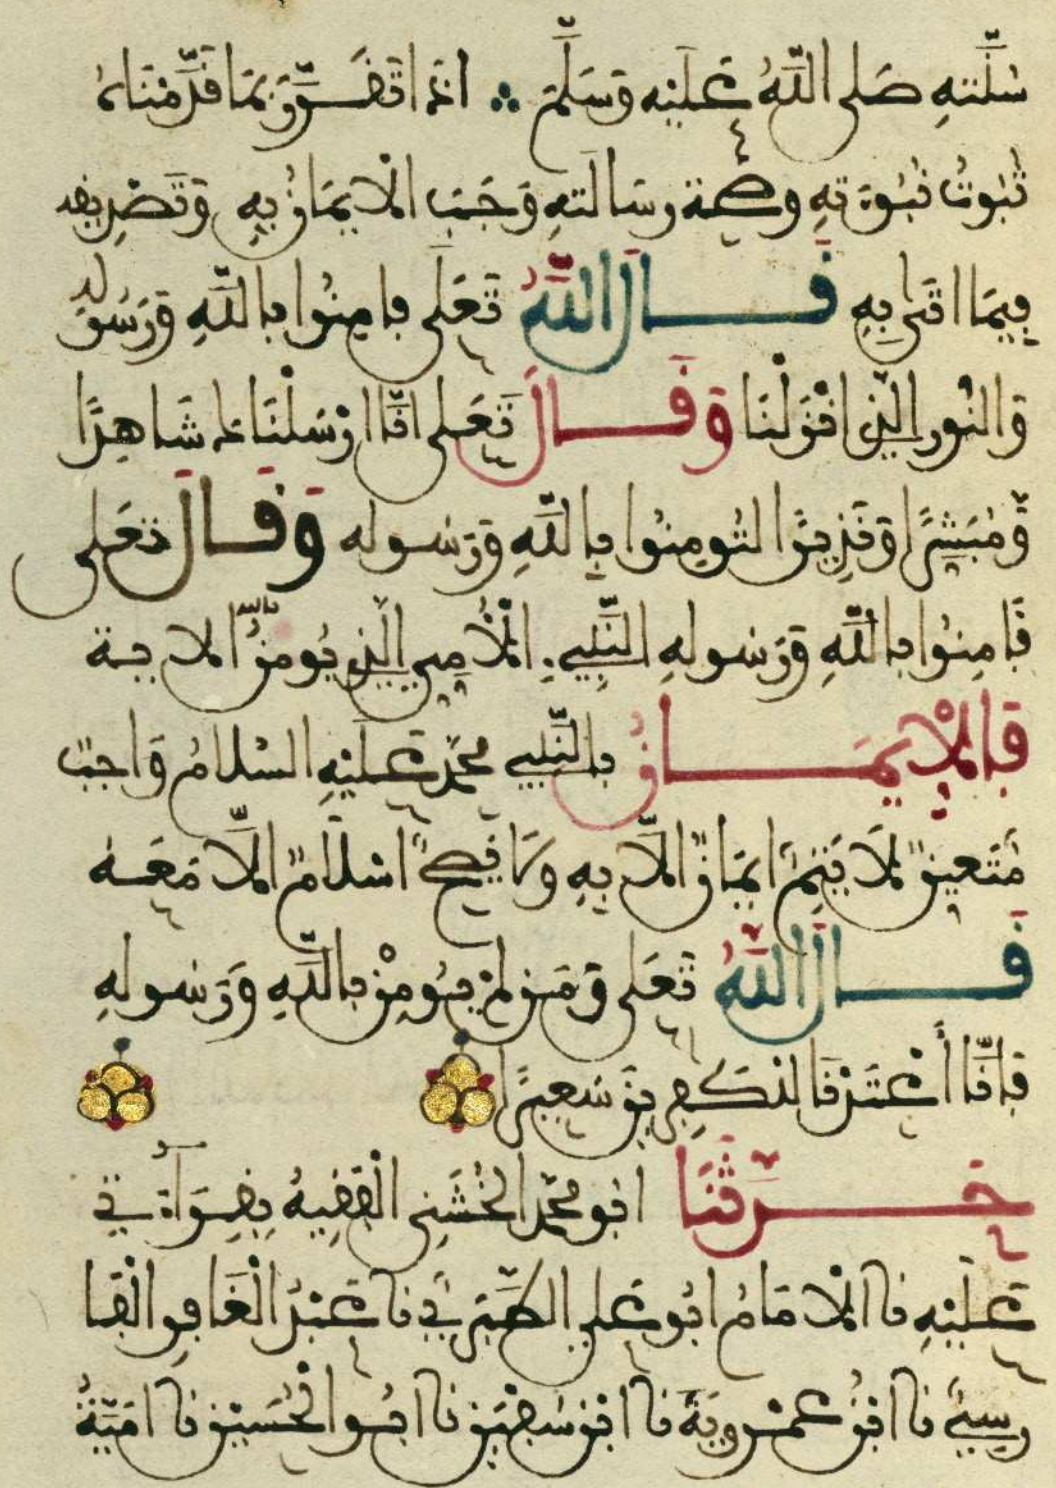 سنته صَلى اللّهُ عَلَيْهِ وَسَلّمَ ∴ اذا تَقَرَّرَ بمَا قَدّمْنَاهُ
ثبُوتُ نُبُوَّتِهِ وصحة رسَالَتهِ وَجَبَ الْإيمَانُ بِهِ وَتَصْدِيقه
فِيمَا اتَى بِهِ قَالَ اللّهُ تَعَلَى فامِنُوا بِاللّهِ وَرَسُولِهِ
وَالنّورِ الّذِي انْزَلْنَا وَقَالَ تَعَلى انَّا ارْسَلْنَاكَ شَاهِدًا
وَّمُبَشِّرًا وَنَذِيرًا لتُومِنُوا بِاللّهِ وَرَسُوله وَقَالَ تعَلى
فَامِنُوا بِاللّهِ وَرَسُولِهِ النَّبِيّ الْأُمِّيّ الّذِي يُومِنُ بالله الاية
فَالْإِيمَانُ بِالنَّبِيّ محمّد عَلَيْهِ السّلامُ وَاجبٌ
مُتَعينٌ لاَ يَتِمُّ ايمَانٌ الَّا بِهِ وَلا يَصحُّ اسْلامٌ الَّا مَعَهُ
قَالَ اللّهُ تَعَلى وَمَن لمْ يُومِنْ بِاللّهِ وَرَسُولِهِ
فَإنَّا أَعْتَدْنَا لِلْكَافِرِينَ سَعِيرًا
حَدّثَنَا ابُو محمّد الخُشَنِي الْفَقِيهُ بِقِرَاءَتي
عَلَيْهِ نا الْامَامُ ابُو عَلي الطَّبَرِيّ نا عَبْدُ الْغَافِرِ الْفَا
رِسِيُّ نا ابْنُ عَمْرويَةَ نا ابْن سُفْيَن نا ابُو الْحُسَيْن نا امَيّةُ